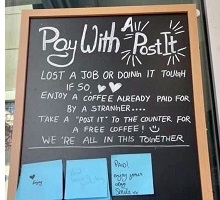 Pay With A Post It
LOST A JOB OR DOING IT TOUGH
IF SO,
ENJOY A COFFEE ALREADY PAID FOR
BY A STRANGER....
TAKE A "POST IT" TO THE COUNTER FOR
A FREE COFFEE!
WE'RE ALL IN THIS TOGETHER
Enjoy
Paid!
enjoy your
day
Smile